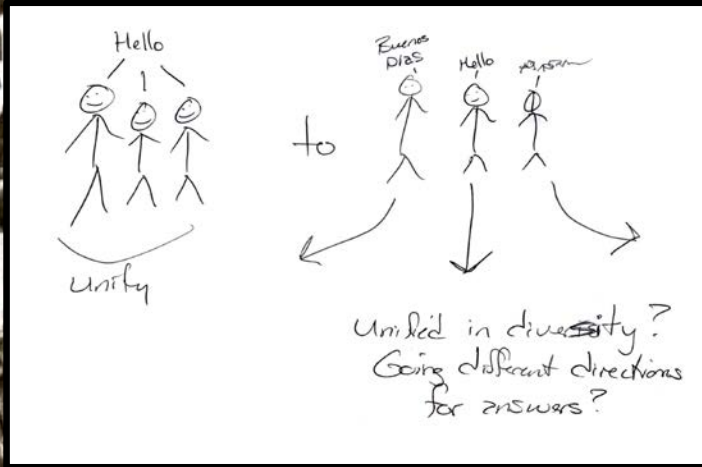 Hello
Unity
to
Buenos
Dias
Hello
Unified in diversity?
Going different directions
for answers?